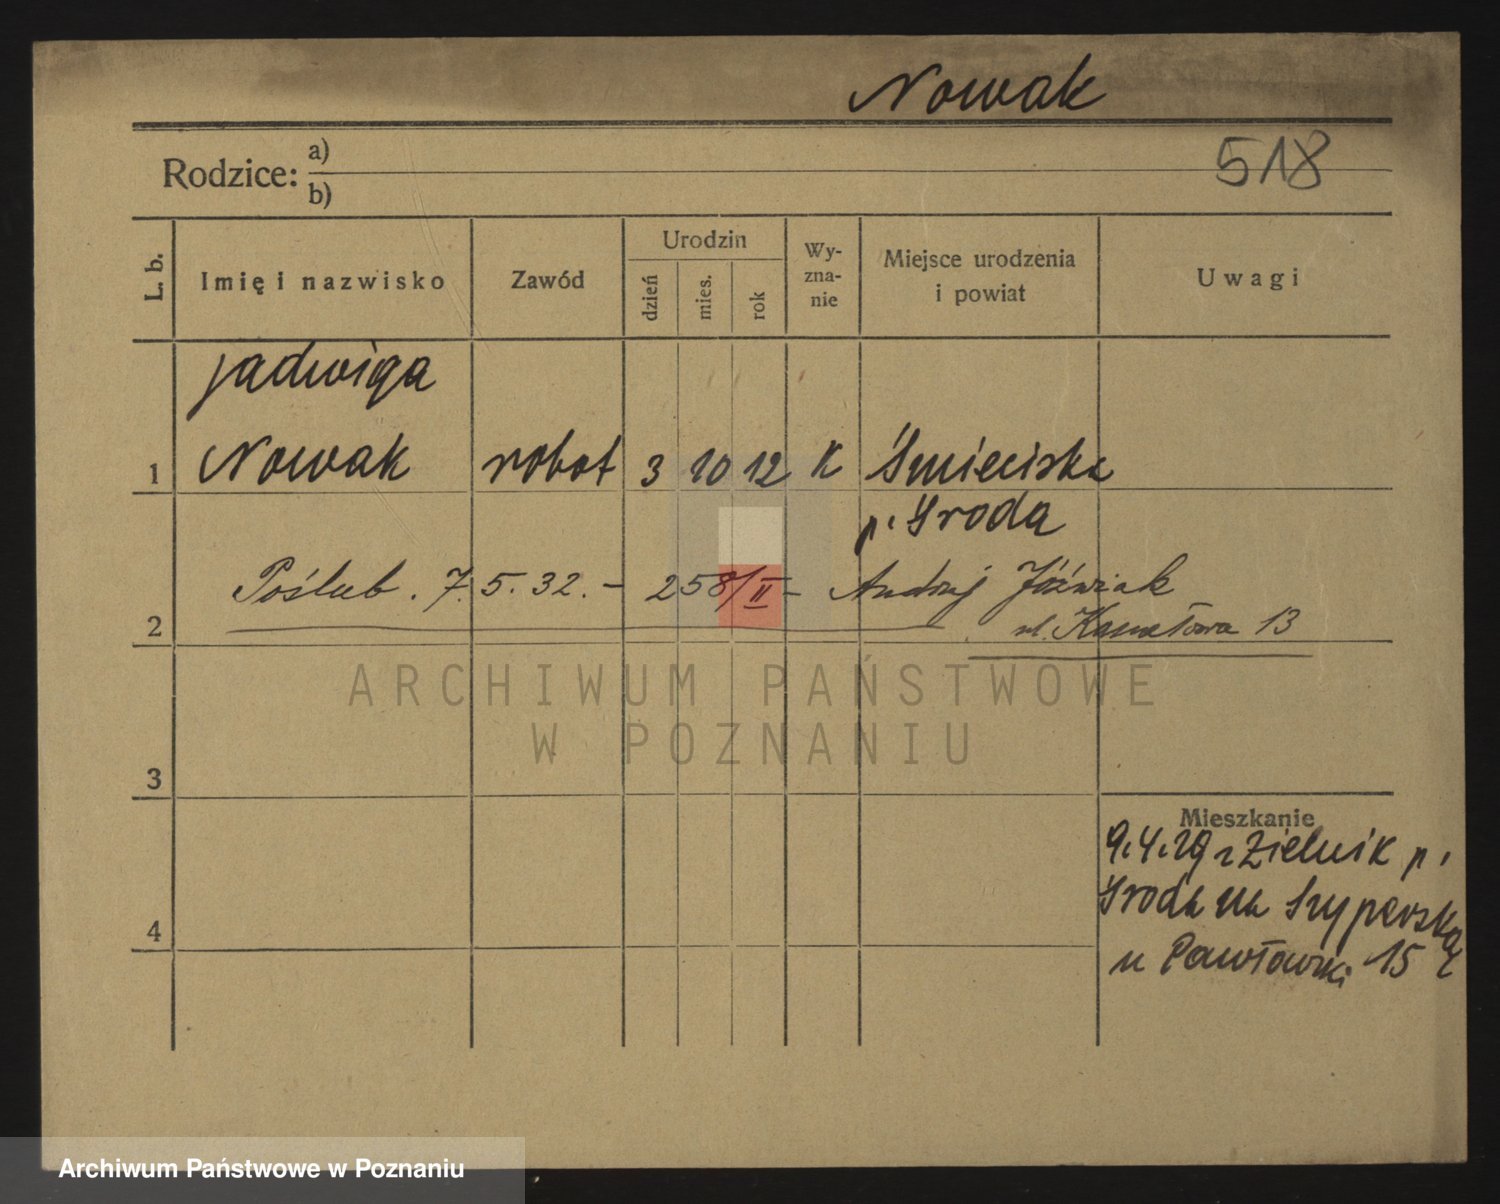 Nowak
518
Rodzice: a)
b)
L. b. Imię i nazwisko Zawód Urodzin dzień mies. rok Wy-zna-nie Miejsce urodzenia i powiat Uwagi
Jadwiga
1 Nowak robot 3 10 12 K Śmieciska
p. Środa
Poślub. 7.5.32. – 258/II – Andrzej Jóźwiak
2 ul. Kanałowa 13
ARCHIWUM PAŃSTWOWE
W POZNANIU
3
Mieszkanie
9.4.29 z Zielnik p.
4 Środa na Szyperską
u Pawłowski 15
Archiwum Państwowe w Poznaniu